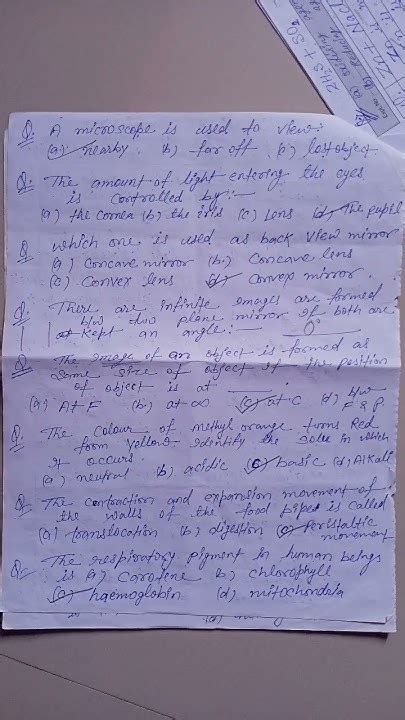 24s + SO2
(a) Oxidising
(b) Reducing
Zn + NaCl
Q. A microscope is used to view:
(a) nearby (b) far off (c) lost object
Q. The amount of light entering the eyes
is controlled by:-
(a) the cornea (b) the iris (c) Lens (d) The pupil
Q which one is used as back view mirror
(a) concave mirror (b) Concave lens
(c) Convex lens (d) Convex mirror.
Q. There are infinite images are formed
b/w two plane mirror if both are
at kept an angle: 0°
Q The image of an object is formed as
Same size of object if the position
of object is at ____.
(a) At F (b) at ∞ (c) at C (d) b/w
F & P.
Q. The colour of methyl orange turns Red
form Yellow. identify the in which
it occurs.
(a) neutral (b) acidic (c) basic (d) Alkali
Q The contraction and expansion movement of
the walls of the food pipes is called
(a) translocation (b) digestion (c) peristaltic
movement
Q. The respiratory pigment in human beings
is (a) Carotene (b) chlorophyll
(c) haemoglobin (d) mitochondela